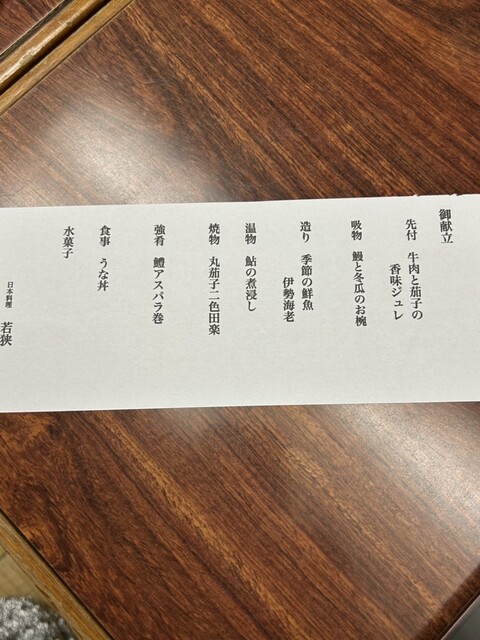 御献立
先付　牛肉と茄子の
香味ジュレ
吸物　鰻と冬瓜のお椀
造り　季節の鮮魚
伊勢海老
温物　鮎の煮浸し
焼物　丸茄子二色田楽
強肴　鱧アスパラ巻
食事　うな丼
水菓子
日本料理　若狭